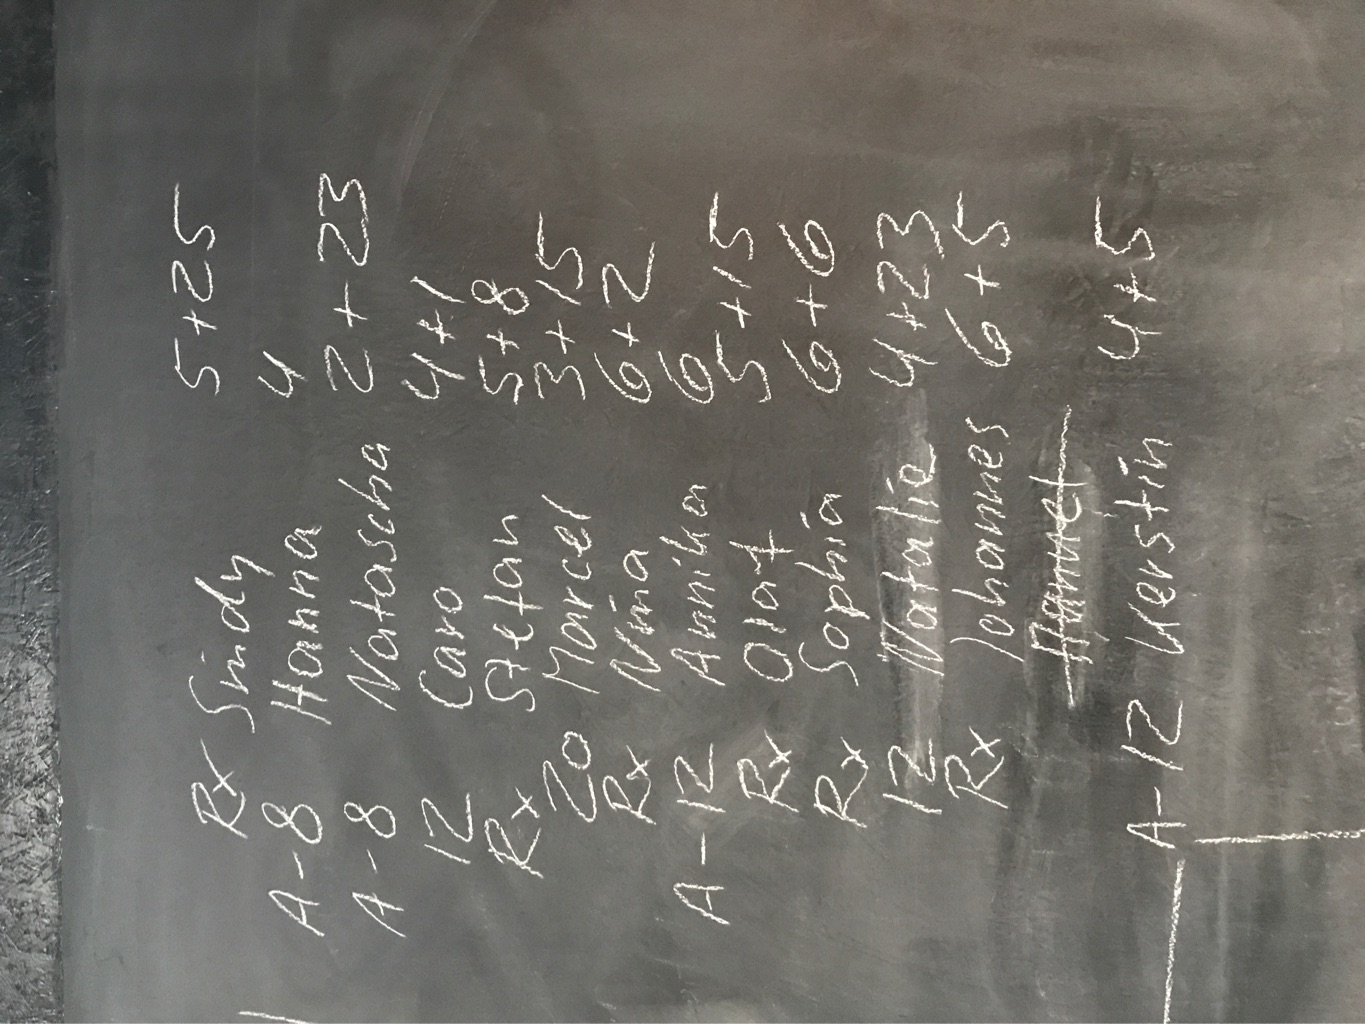 Rx Sindy 5+25
A-8 Hanna 4
A-8 Natascha 2+23
12 Caro 4+1
Rx Stefan 5+8
20 Marcel 3+15
Rx Nina 6+2
A-12 Annika 6
Rx Olaf 5+15
Rx Sophia 6+6
12 Natalie 4+23
Rx Johannes 6+5
A-12 Kerstin 4+5